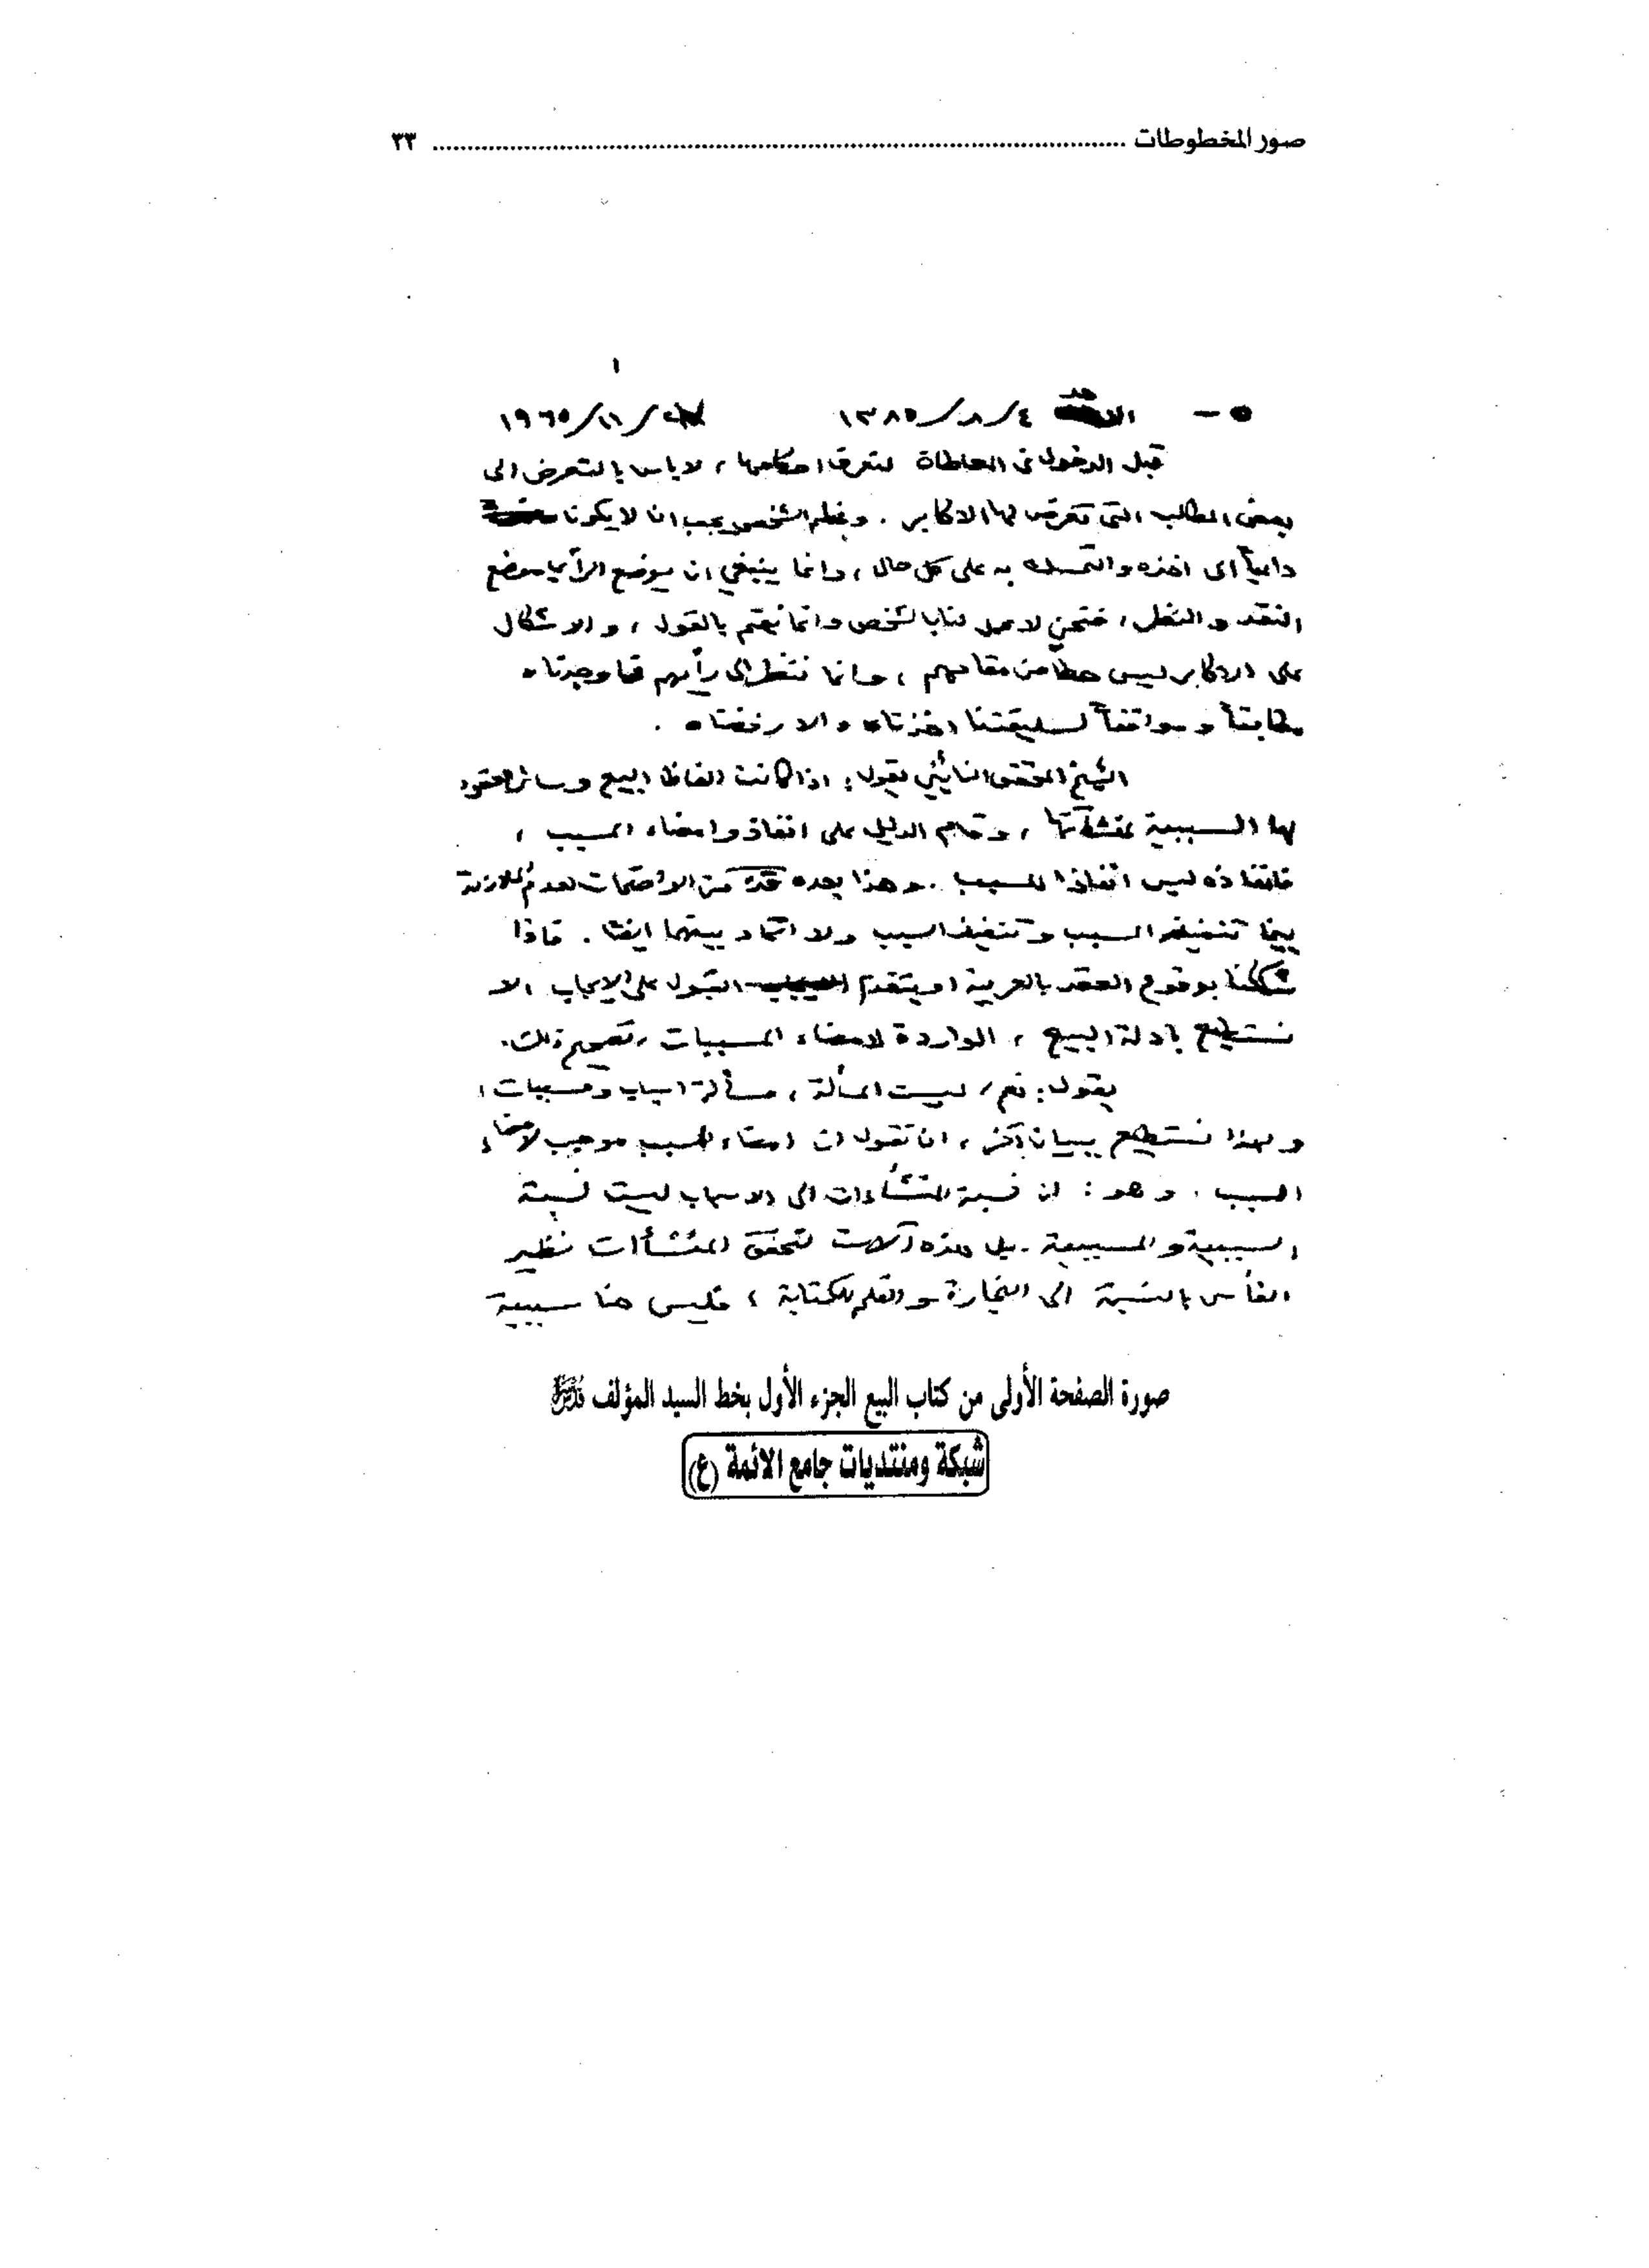 صور المخطوطات ........................................ ٣٣
١
٥ - الاحد ٤/ ٨/ ١٣٨٥ /١١/ ١٩٦٥
قبل الدخول في المعاطاة لنعرف احكامها، لا باس بالتعرض الى
بعض المطالب التي تعرض لها الاكابر. وعظم الشخص يجب ان لا يكون
داعياً الى اخذه والتمسك به على كل حال، وانما ينبغي ان يوضع الرأي موضع
النقد و النظر، فنحن لا عمل لنا بالشخص وانما نهتم بالقول، والاشكال
على الاكابر ليس حطاً من مقامهم، وانما ننظر الى رأيهم فما وجدناه
مطابقاً وموافقاً لسليقتنا اخذناه والا رفضناه.
الشيخ المحقق النائيني يقول: اذا كانت الفاظ البيع وسائر العقود
لها السببية لمنشآتها، وقام الدليل على انفاذ وامضاء المسبب،
فانفاذه ليس انفاذا للسبب. وهذا يعده من الواضحات لعدم الملازمة
بين تنفيذ السبب وتنفيذ المسبب ولا اتحاد بينهما ايضا. فاذا
شككنا بوقوع العقد بالعربية او بتقدم القبول على الايجاب الا
نستطيع بادلة البيع، الواردة لامضاء المسببات، تصحيح ذلك.
يقول: نعم، ليست المسألة، مسألة اسباب ومسببات،
ولهذا نستطيع ببيان آخر، ان نقول ان امضاء المسبب موجب لامضاء
السبب. وهو: ان نسبة المنشاءات الى الاسباب ليست نسبة
السببية والمسببية. بل هذه آلات لتحقق المنشأات نظير
الفأس بالنسبة الى النجارة والقلم للكتابة، فليس هنا سببية
صورة الصفحة الأولى من كتاب البيع الجزء الأول بخط السيد المؤلف قدس سره
شبكة ومنتديات جامع الائمة (ع)